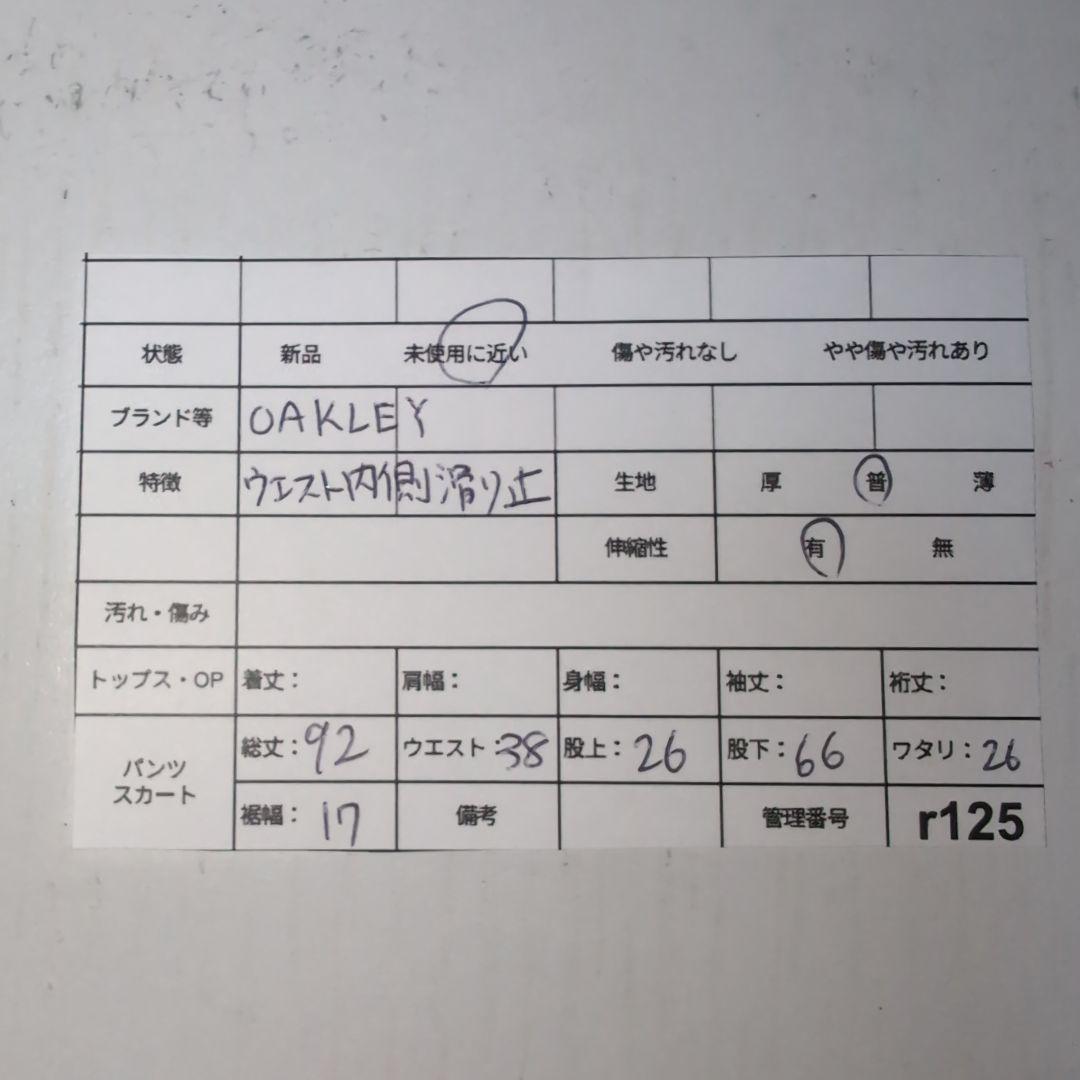 状態 新品 未使用に近い 傷や汚れなし やや傷や汚れあり
ブランド等 OAKLEY
特徴 ウエスト内側滑り止 生地 厚 普 薄
伸縮性 有 無
汚れ・傷み
トップス・OP 着丈： 肩幅： 身幅： 袖丈： 裄丈：
パンツ
スカート
総丈：92 ウエスト：38 股上：26 股下：66 ワタリ：26
裾幅：17 備考 管理番号 r125